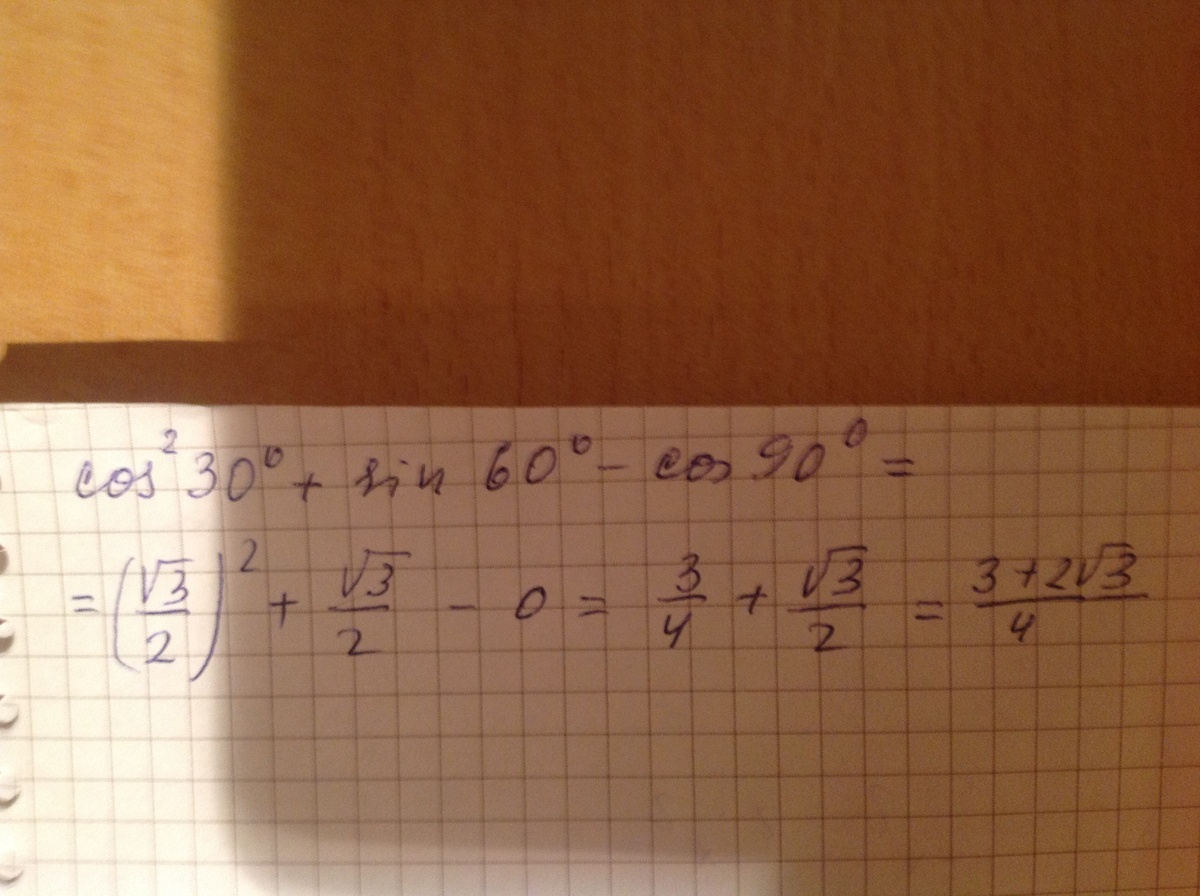 cos² 30° + sin 60° - cos 90° =
= (√3/2)² + √3/2 - 0 = 3/4 + √3/2 = (3+2√3)/4